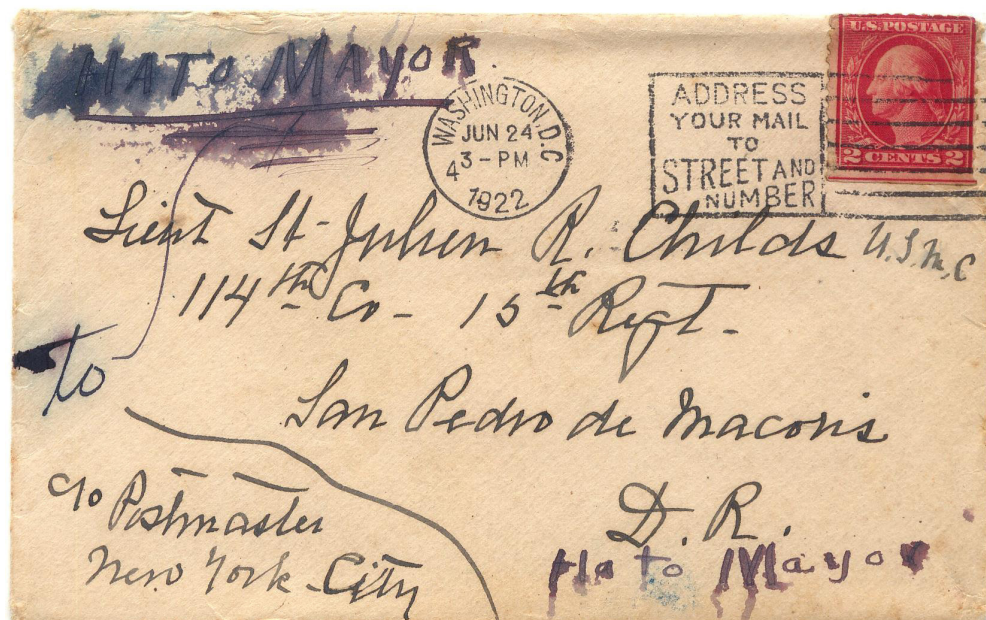 HATO MAYOR
U.S. POSTAGE
2 CENTS 2
WASHINGTON, D.C.
JUN 24
4 3-PM
1922
ADDRESS
YOUR MAIL
TO
STREET AND
NUMBER
Lieut St. Julien R. Childs U.S.M.C
114th Co - 15th Regt -
to
San Pedro de Macoris
D. R.
c/o Postmaster
New York City
Hato Mayor